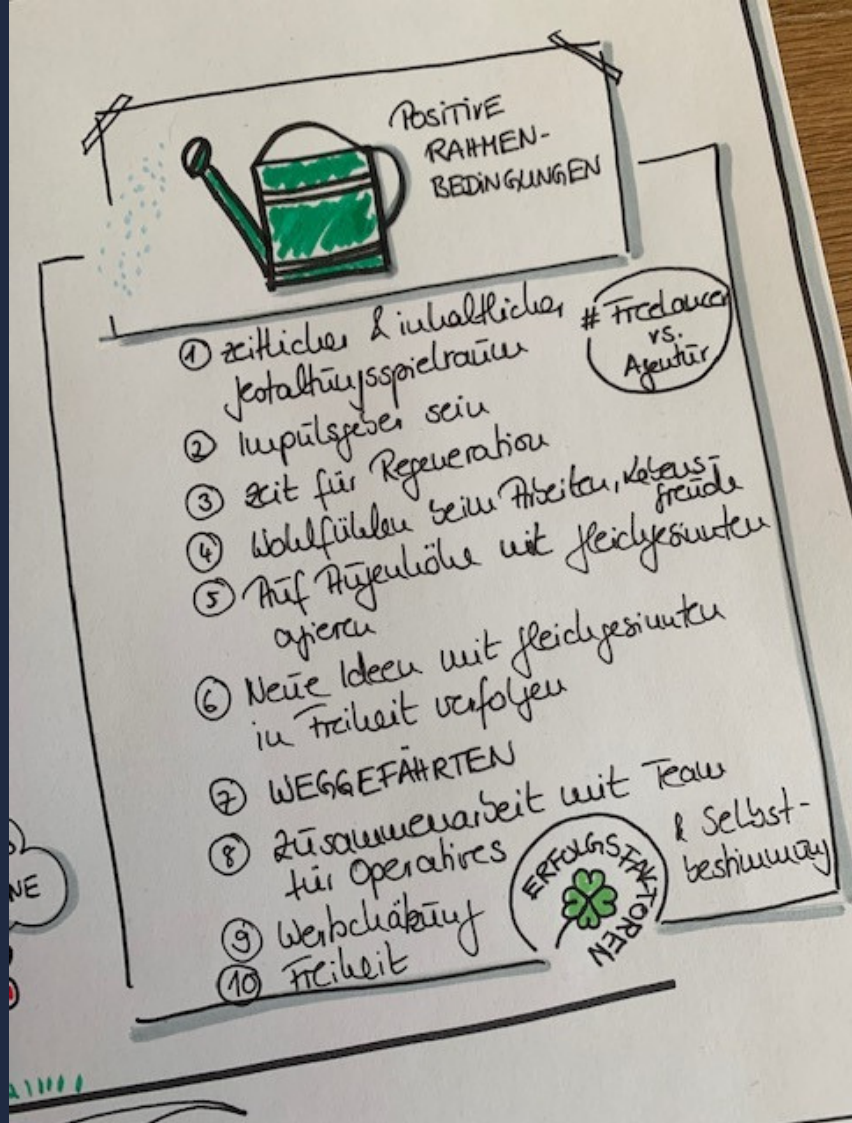 POSITIVE
RAHMEN-
BEDINGUNGEN
# Freelancer
vs.
Agentur
① zeitlicher & inhaltlicher
gestaltungsspielraum
② Impulsgeber sein
③ zeit für Regeneration
④ Wohlfühlen beim Arbeiten, Lebens-
freude
⑤ Auf Augenhöhe mit gleichgesinnten
agieren
⑥ Neue Ideen mit gleichgesinnten
in Freiheit verfolgen
⑦ WEGGEFÄHRTEN
⑧ Zusammenarbeit mit Team
für Operatives
⑨ Wertschätzung
⑩ Freiheit
& Selbst-
bestimmung
ERFOLGSFAKTOREN
NE